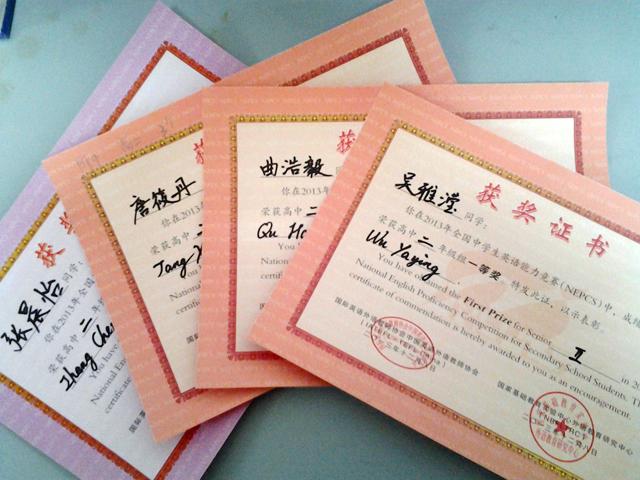 获奖证书
吴雅滢 同学:
你在2013年全国中学生英语能力竞赛(NEPCS)中,成绩
荣获高中二年级组一等奖 特发此证,以示表彰.
Wu Yaying
You have obtained the First Prize for Senior II in
National English Proficiency Competition for Secondary School Students. Th
certificate of commendation is hereby awarded to you as an encouragement.
国家基础教育实验中心外语教育研究中心
获
曲浩毅
你在2013
荣获高中二
Qu H
You h
National
certificate
国际英
获
唐筱丹
你在2013年
荣获高中二
Tang
You
National E
certificate
国际
获奖
张晨怡 同学:
你在2013年全
荣获高中二年
Zhang Che
You have
National Eng
certificate o
国际英